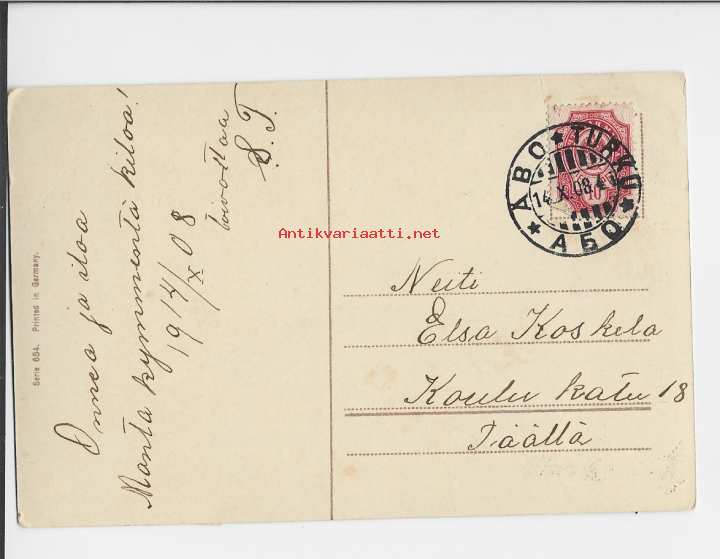 Onnea ja iloa
Monta kymmentä kiloa!
19 14/X 08
toivottaa
S. T.
Serie 684. Printed in Germany.
ÅBO * TURKU * АБО *
14.X.08.
10
Antikvariaatti.net
Neiti
Elsa Koskela
Koulu katu 18
Täällä